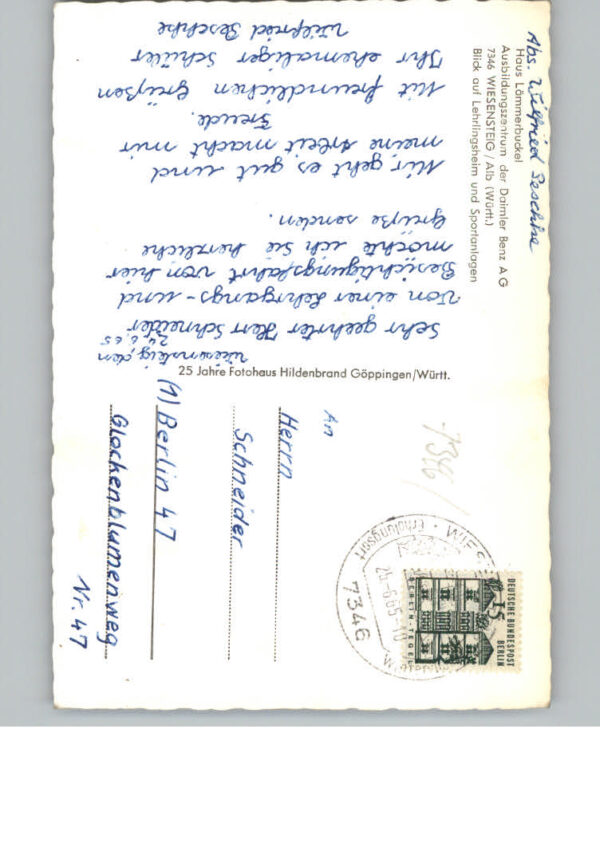 Abs. Wilfried Peschke
Haus Lämmerbuckel
Ausbildungszentrum der Daimler Benz A G
7346 WIESENSTEIG / Alb (Württ.)
Blick auf Lehrlingsheim und Sportanlagen
Wiesensteig, den
24.6.65
Sehr geehrter Herr Schneider
Von einer Lehrgangs- und
Besichtigungsfahrt von hier
möchte ich Sie herzliche
Grüße senden.
Mir geht es gut und
meine Arbeit macht mir
Freude.
Mit freundlichen Grüßen
Ihr ehemaliger Schüler
Wilfried Peschke
25 Jahre Fotohaus Hildenbrand Göppingen/Württ.
7346/
An
Herrn
Schneider
(1) Berlin 47
Glockenblumenweg
Nr. 47
7346
Erholungsort
25.-6.65-10
DEUTSCHE BUNDESPOST
BERLIN
15
BERLIN-TEGEL